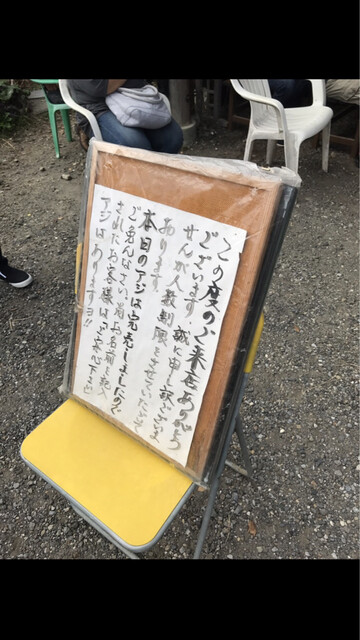 この度のご来店ありがとう
ございます。誠に申し訳ございま
せんが人数制限をさせていただいて
おります。
本日のアジは完売しましたので
ご免んなさい。尚お名前を記入
されたお客様はご安心下さい
アジはありますヨ!!